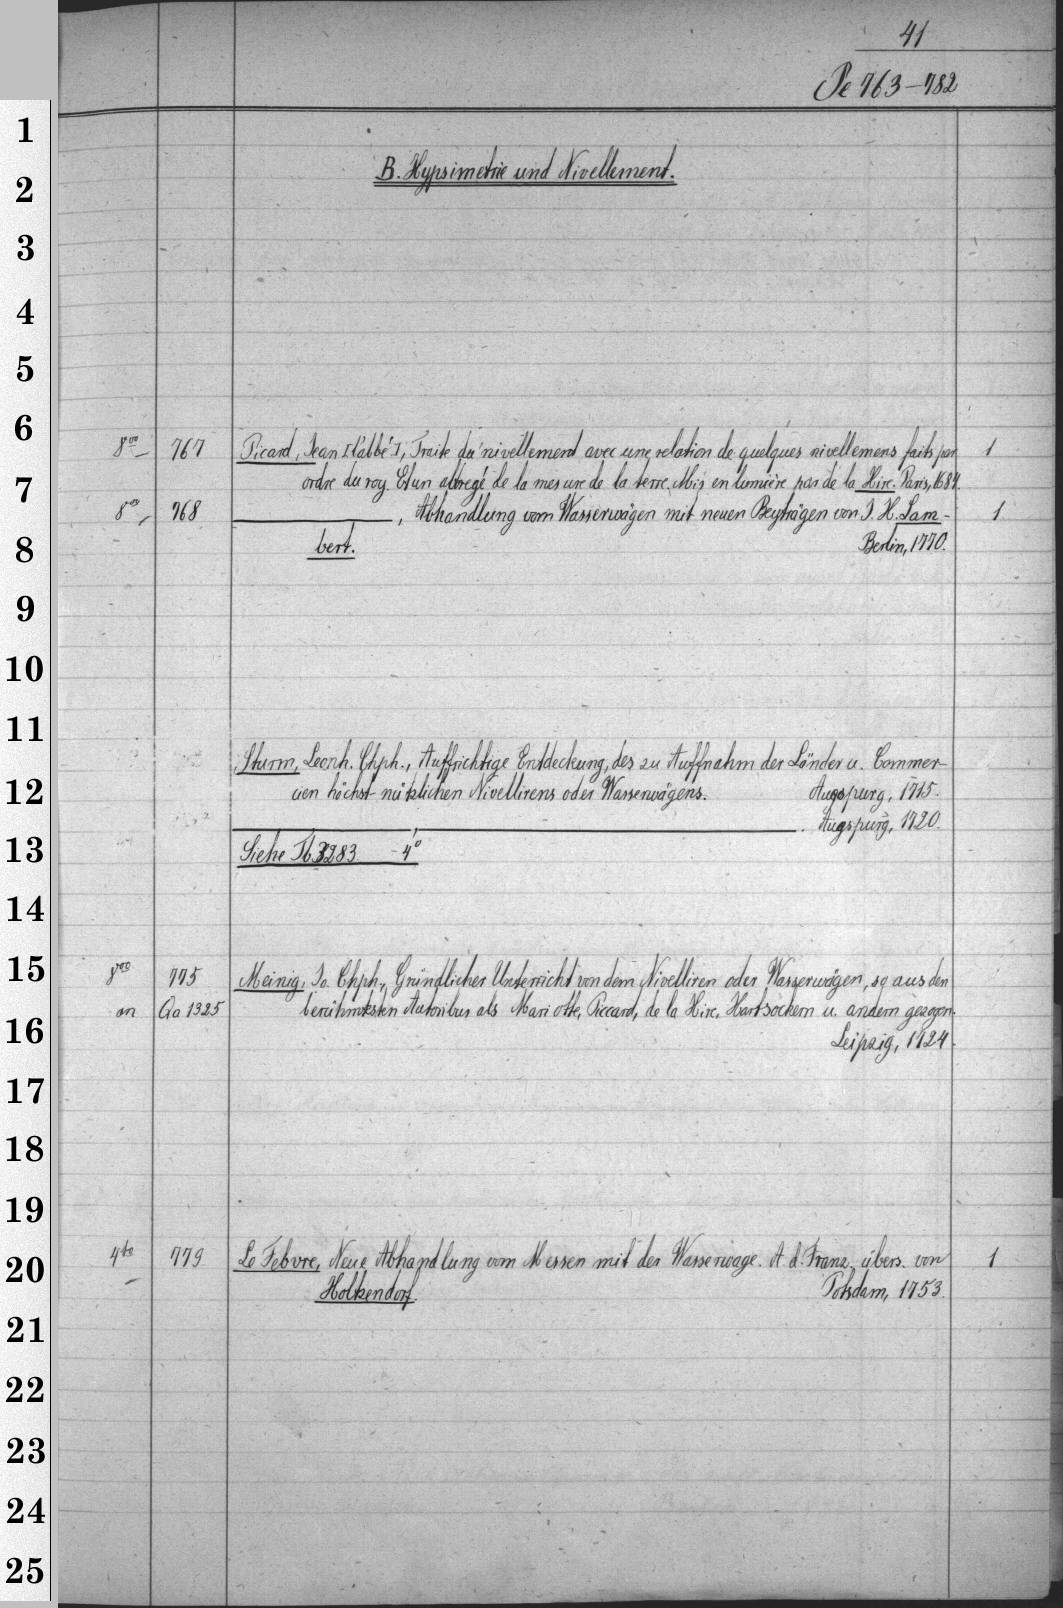 41
Pe 763-782
1
B. Hypsimetrie und Nivellement.
2
3
4
5
6
8vo 767 Picard, Jean [l'abbé], Traité du nivellement avec une relation de quelques nivellemens faits par 1
7
ordre du roy. Et un abregé de la mesure de la terre. Mis en lumière par de la Hire. Paris, 1684.
8vo 768 , Abhandlung vom Wasserwägen mit neuen Beyträgen von J. H. Lam- 1
8
bert. Berlin, 1770.
9
10
11
Sturm, Leonh. Chph., Auffrichtige Entdeckung, des zu Auffnahm der Länder u. Commer-
12
cien höchst nützlichen Nivellirens oder Wasserwägens. Augspurg, 1715.
, . Augspurg, 1720.
13
Siehe 3283 4°
14
15
8vo 775 Meinig, Jo. Chph., Gründlicher Unterricht von dem Nivelliren oder Wasserwägen, so aus den
an Qa 1325 berühmtesten Autoribus als Mariotte, Piccard, de la Hire, Hartsockern u. andern gezogen.
16
Leipzig, 1724.
17
18
19
4to 779 Le Febvre, Neue Abhandlung vom Messen mit der Wasserwage. A. d. Franz. übers. von 1
20
Holkendorf. Potsdam, 1753.
21
22
23
24
25